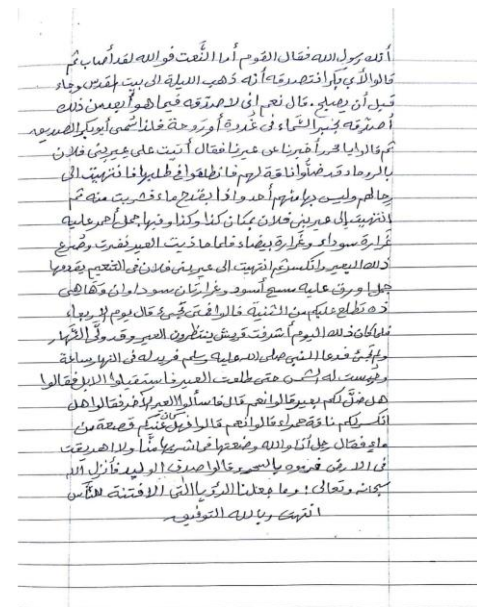 أنك رسول الله فقال القوم أما النَّعت فو الله لقد أصاب ثم
قالوا لأبي بكر أفتصدقه أنه ذهب الليلة إلى بيت المقدس وجاء
قبل أن يصبح. قال نعم انى لاصدّقه فيما هو أبعد من ذلك
أصدّقه بخبر السَّماء فى غُدوة أو رَوحة فلذا سُمى أبو بكر الصديق
ثم قالوا يا محمد أخبرنا عن عيرنا فقال أتيت على عير بنى فلان
بالروحاء قد ضلّوا ناقة لهم فانطلقوا فى طلبها فانتهيت الى
رحالهم وليس بها منهم أحد واذا بقدح ماء فشربت منه ثم
انتهيت إلى عير بنى فلان بمكان كذا وكذا وفيها جمل أحمر عليه
غرارة سوداء وغرارة بيضاء فلما حاذيت العير نفرت وصُرع
ذلك البعير وانكسر ثم انتهيت الى عير بنى فلان فى التنعيم يقدمها
جمل أورق عليه مسح أسود وغرارتان سوداوان وهاهى
ذه تطلع عليكم من الثنية قالوا فمتى تجىء قال يوم الاربعاء
فلما كان ذلك اليوم أشرفت قريش ينتظرون العير وقد ولّى النَّهار
ولم تجئ فدعا النبى صلى الله عليه وسلم فزيد له فى النهار ساعة
وحُبست له الشمس حتى طلعت العير فاستقبلوا الابل فقالوا
هل ضلّ لكم بعير قالوا نعم قال فاسألوا العير الآخر فقالوا هل
انكسر لكم ناقة حمراء قالوا نعم قالوا فهل كان عندكم قصعة من
ماء فقال رجل أنا والله وضعتها فما شربها منّا ولا اهريقت
فى الارض فرموه بالسحر وقالوا صدق الوليد فأنزل الله
سبحانه وتعالى: وما جعلنا الرؤيا التى الا فتنة للنَّاس
انتهت وبالله التوفيق